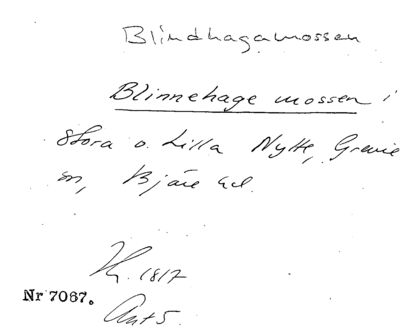 Blindhagamossen
Blinnehage mossen i
Stora o. Lilla Nytte, Grevie
sn, Bjäre hd.
1817
Nr 7067.
Ant 5.